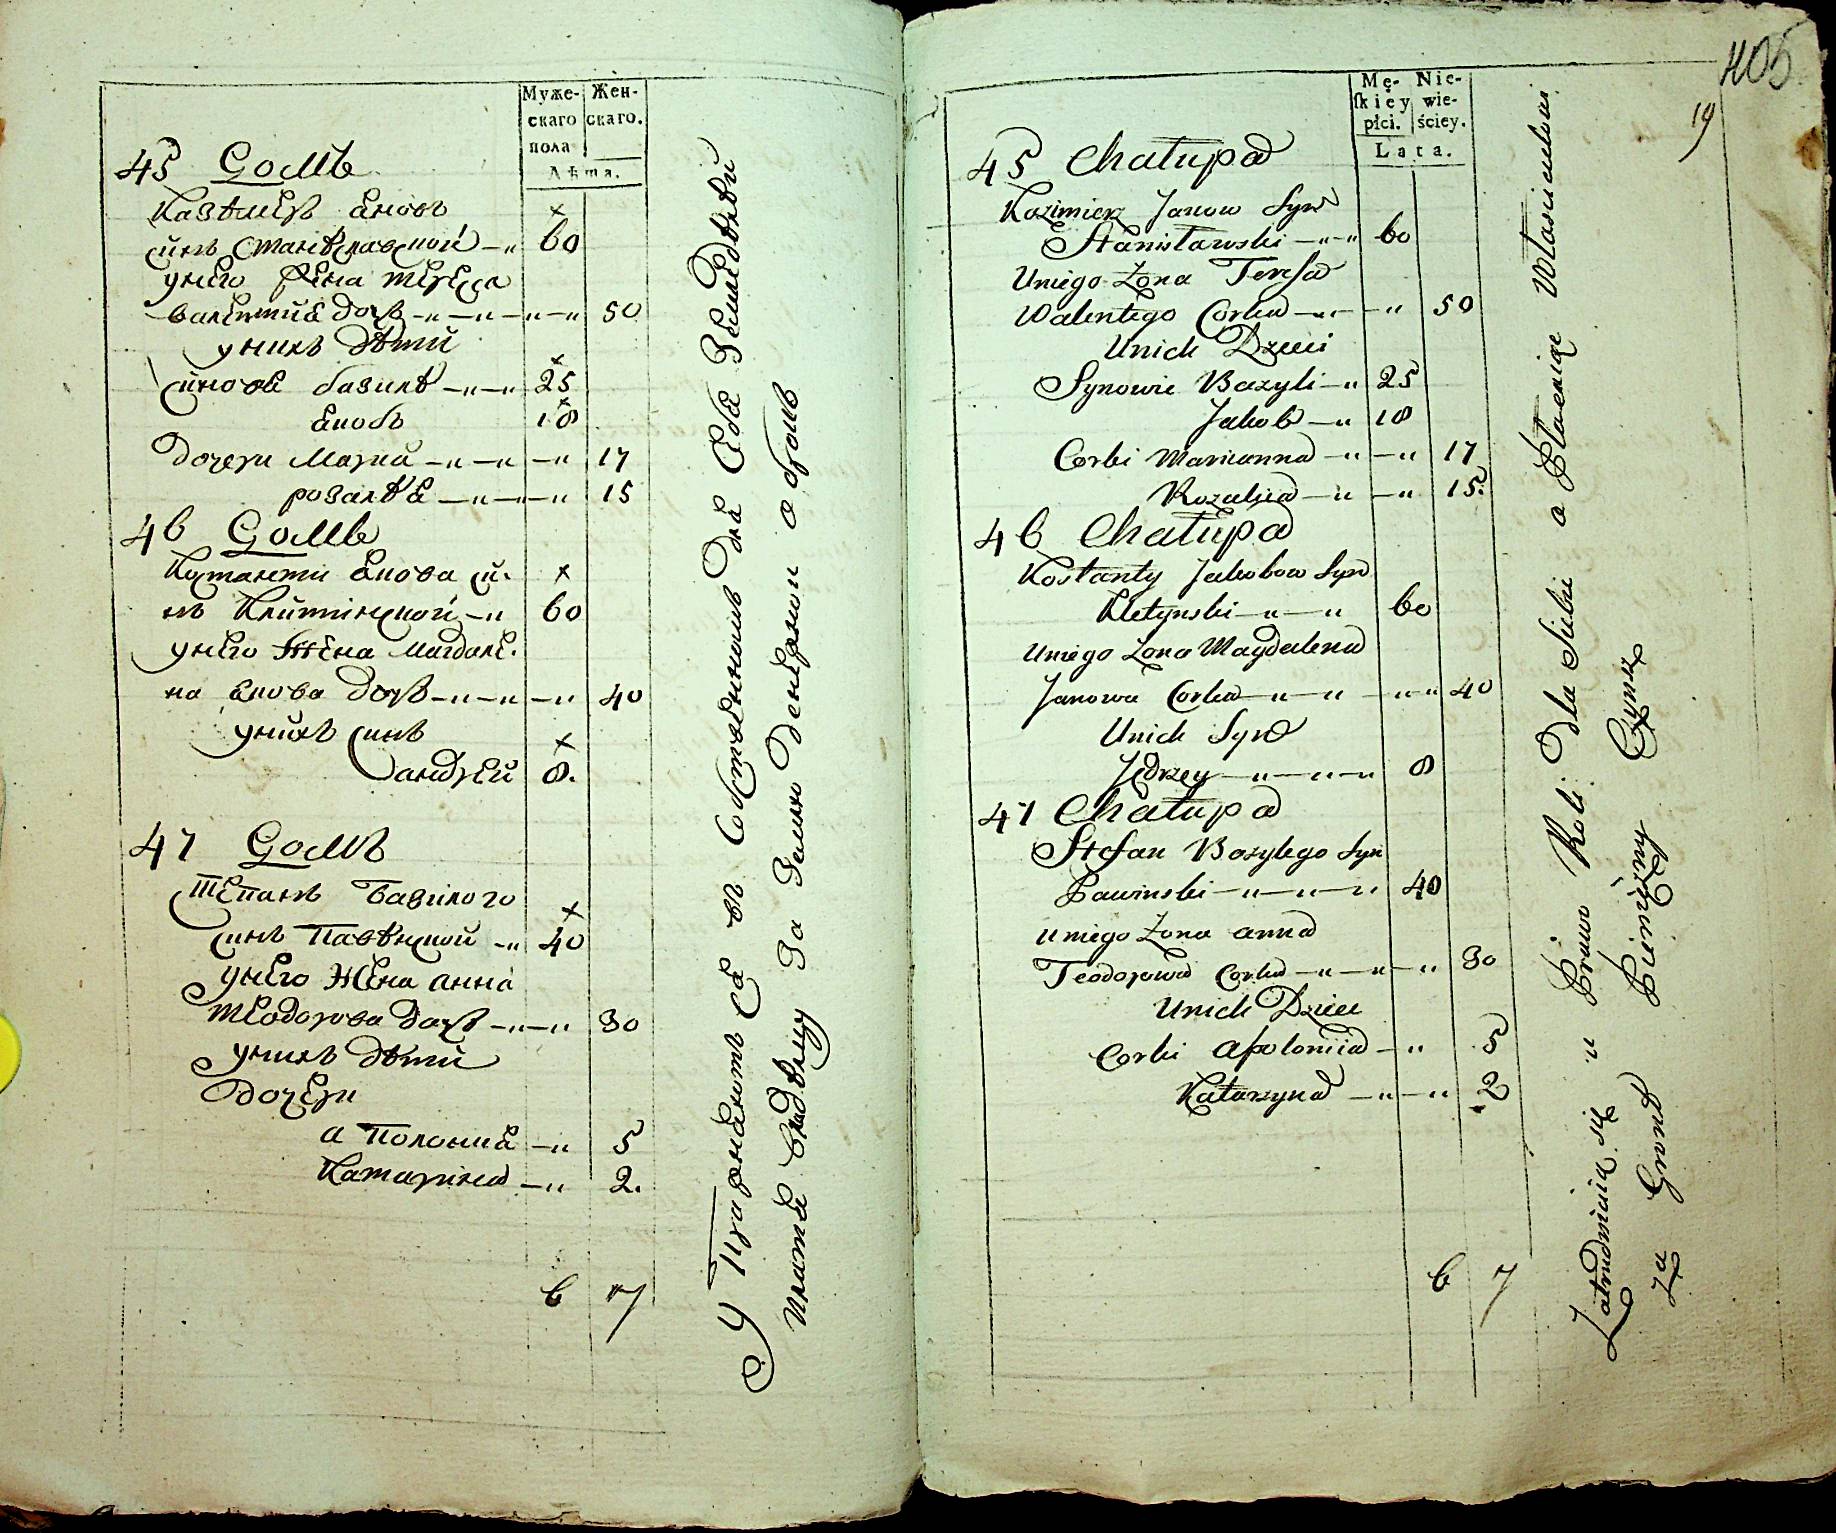 Муже- Жен-
скаго скаго.
пола
Лѣта.
45 Домъ
Казѣмеръ Яновъ
синъ Станѣславской 60
унего Жена Тереса
валентия дочь 50
унихъ дѣти
синове базилѣ 25
Якобъ 18
Дочери Марыя 17
розалѣя 15
46 Домъ
Костанти Якова си-
нъ Клитинской 60
унего Жена Магдале-
на Янова дочь 40
унихъ синъ
андрей 8.
47 Домъ
Степанъ Базилого
синъ Павѣнской 40
унего Жена анна
теодорова дочь 30
унихъ дѣти
дочери
аполония 5
Катарина 2.
6 7
405
19
Mę- Nie-
ſkiey wie-
płci. ściey.
Lata.
45 Chałupa
Kazimierz Janow Syn
Stanisławski 60
Uniego Zona Teresa
Walentego Corka 50
Unich Dzieci
Synowie Bazyli 25
Jakob 18
Corki Marianna 17
Rozalija 15.
46 Chałupa
Kostanty Jakobow Syn
Kletynski 60
Uniego Zona Magdalena
Janowa Corka 40
Unich Syn
Jędrzey 8
47 Chałupa
Stefan Bazylego Syn
Pawinski 40
Uniego Zona anna
Teodorowa Corka 30
Unich Dzieci
Corki Apolonija 5
Katarzyna 2
6 7
Zatrudniaią się Roli Dla Siebie a Płacenie Włascicielowi
Za Gront Pieniężny Czynsz